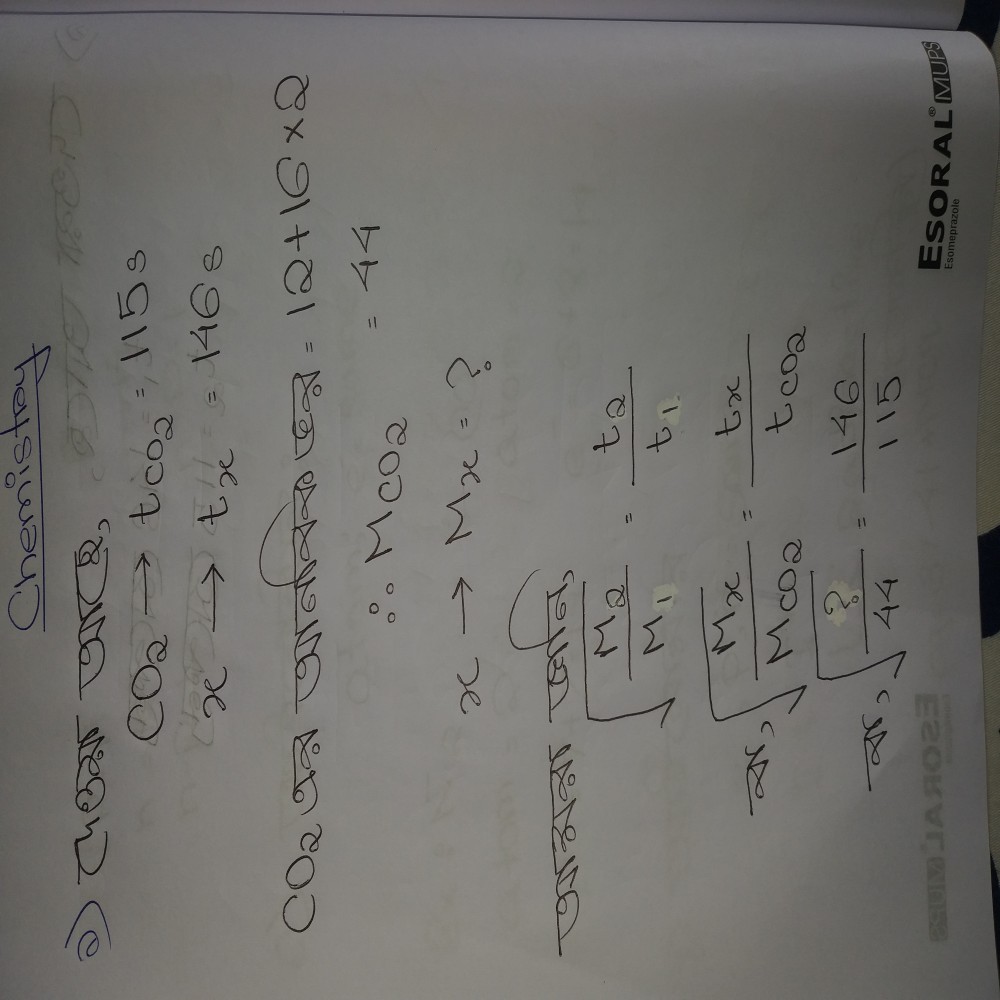 Chemistry
১) দেওয়া আছে,
CO2 → tCO2 = 115s
x → tx = 146s
CO2 এর আণবিক ভর = 12+16×2
∴ MCO2 = 44
x → Mx = ?
আমরা জানি,
√M2/M1 = t2/t1
বা, √Mx/MCO2 = tx/tCO2
বা, √?/44 = 146/115
ESORAL® MUPS
Esomeprazole